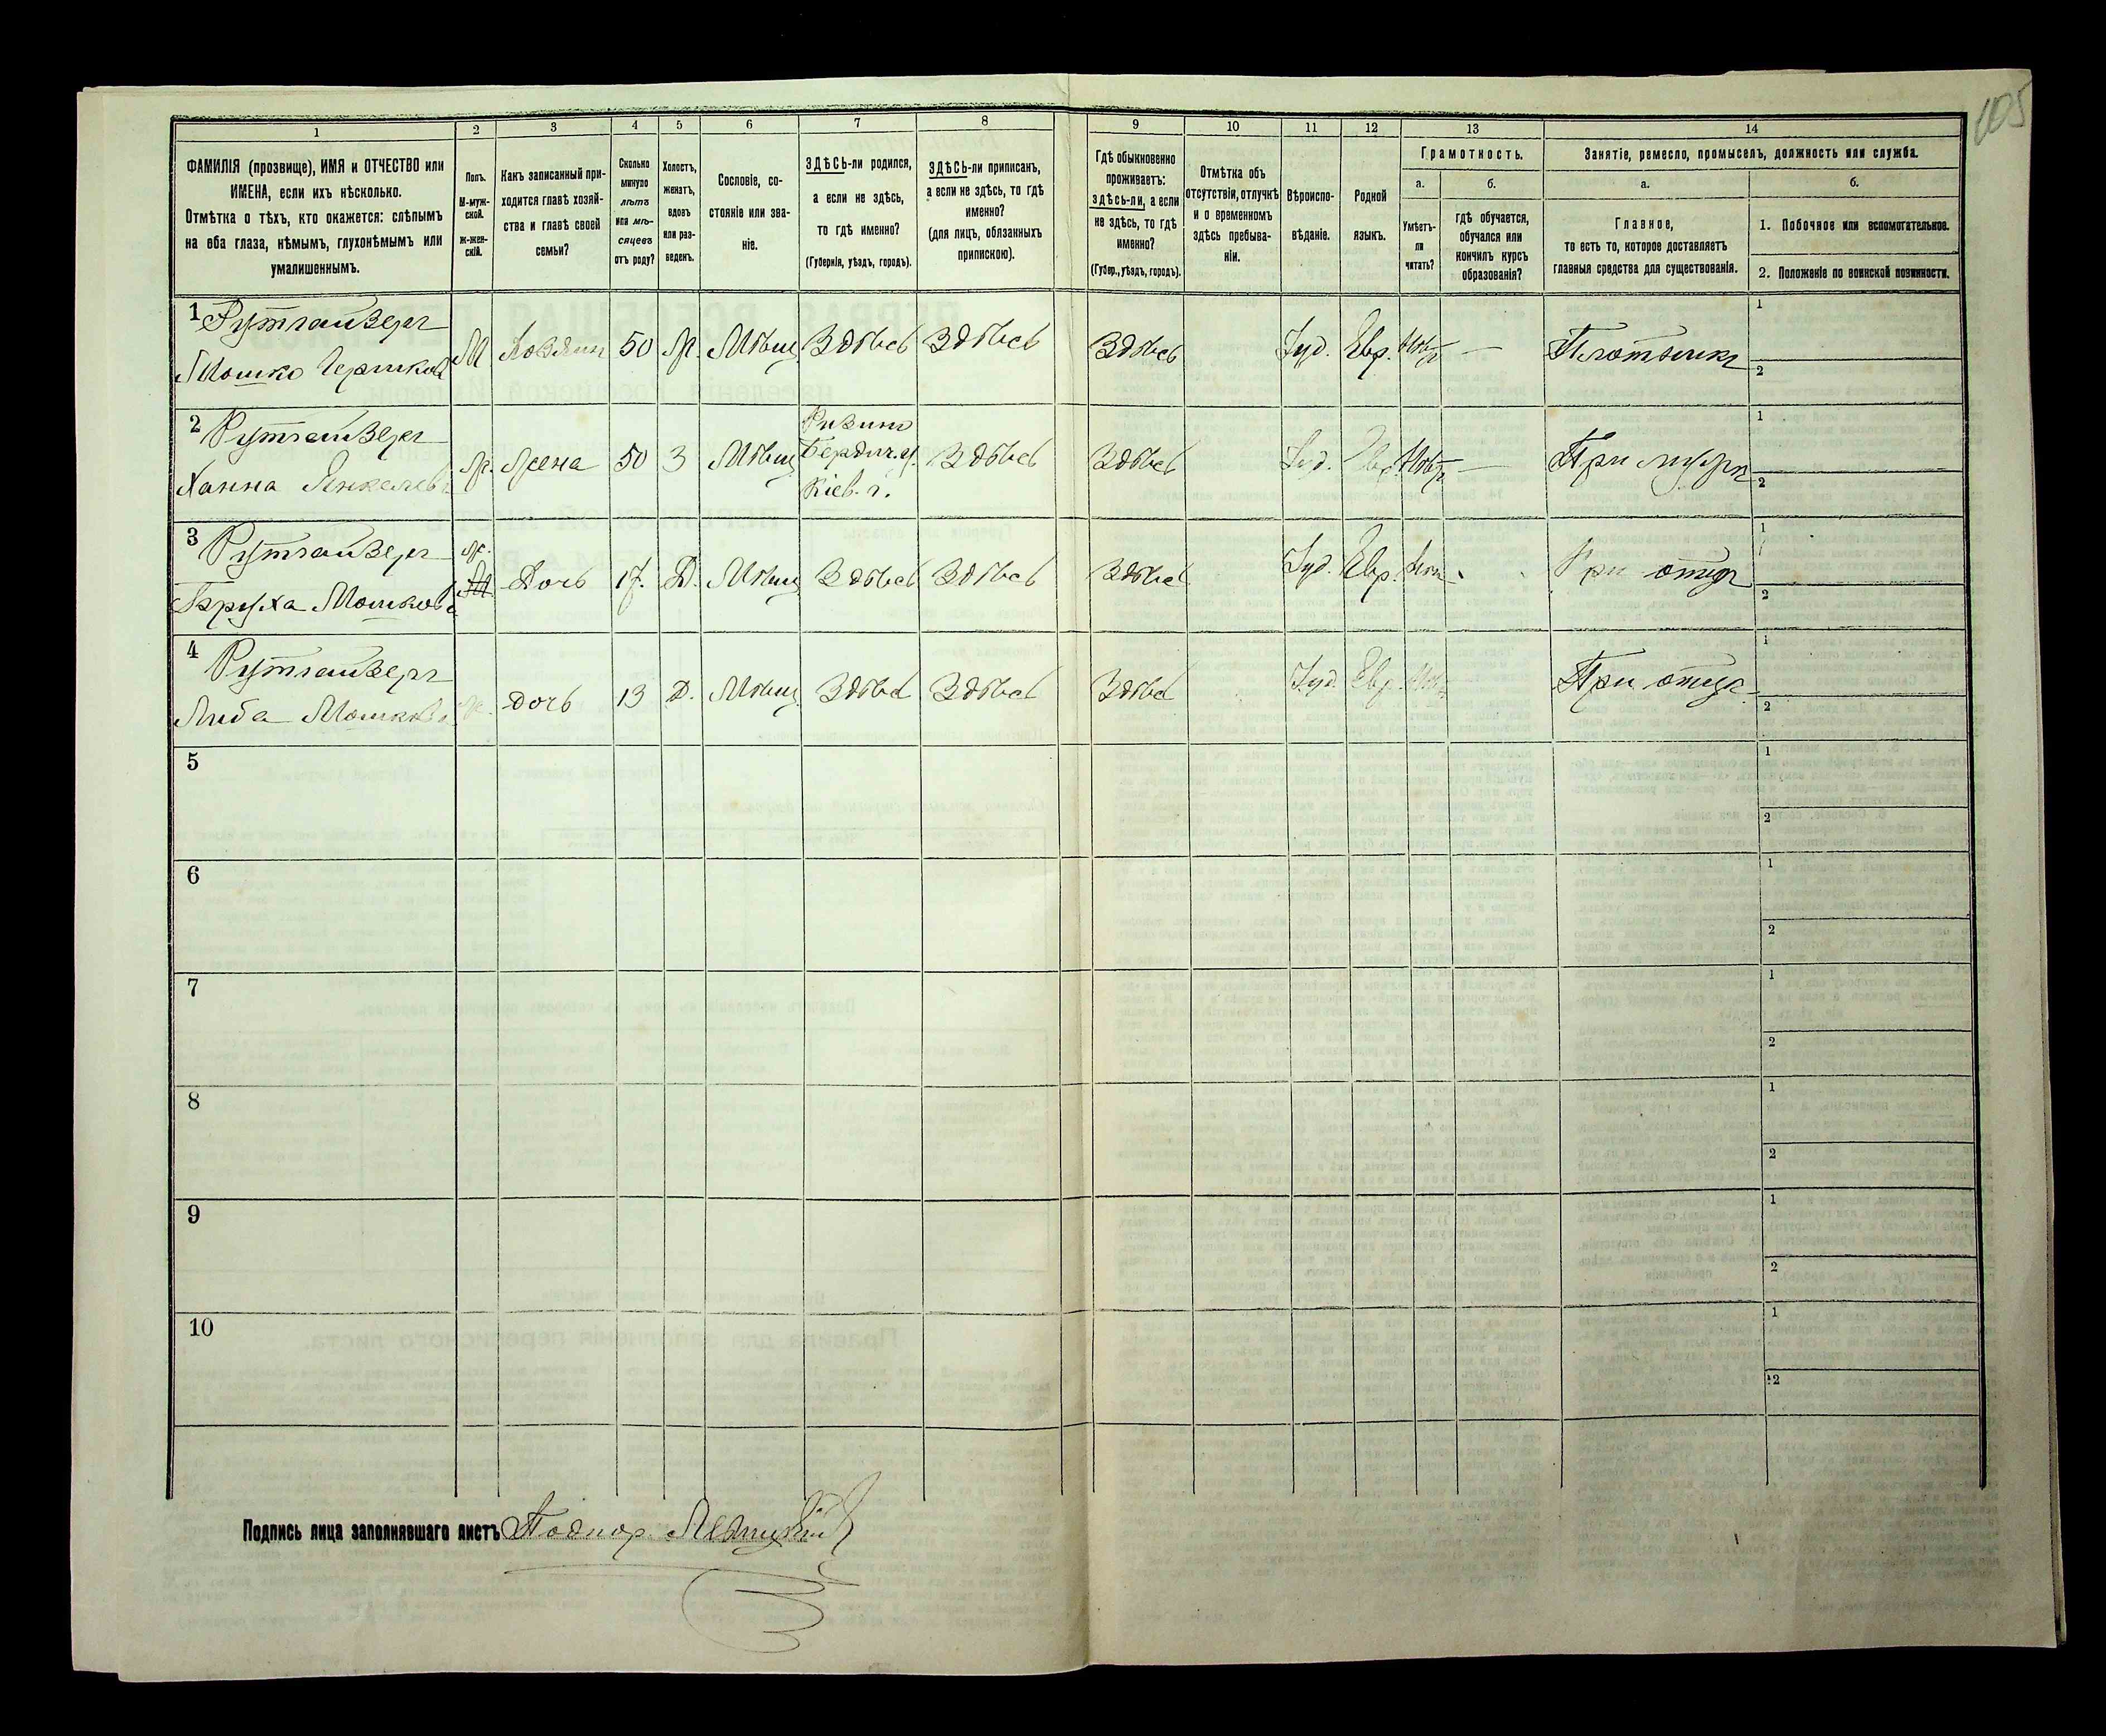 105
1 2 3 4 5 6 7 8 9 10 11 12 13 14
ФАМИЛІЯ (прозвище), ИМЯ и ОТЧЕСТВО или
ИМЕНА, если ихъ нѣсколько.
Отмѣтка о тѣхъ, кто окажется: слѣпымъ
на оба глаза, нѣмымъ, глухонѣмымъ или
умалишеннымъ.
Полъ.
М-муж-
ской.
ж-жен-
скій.
Какъ записанный при-
ходится главѣ хозяй-
ства и главѣ своей
семьи?
Сколько
минуло
лѣтъ
или мѣ-
сяцевъ
отъ роду?
Холостъ,
женатъ,
вдовъ
или раз-
веденъ.
Сословіе, со-
стояніе или зва-
ніе.
ЗДѢСЬ-ли родился,
а если не здѣсь,
то гдѣ именно?
(Губернія, уѣздъ, городъ).
ЗДѢСЬ-ли приписанъ,
а если не здѣсь, то гдѣ
именно?
(для лицъ, обязанныхъ
припискою).
Гдѣ обыкновенно
проживаетъ:
здѣсь-ли, а если
не здѣсь, то гдѣ
именно?
(Губер., уѣздъ, городъ).
Отмѣтка объ
отсутствіи, отлучкѣ
и о временномъ
здѣсь пребыва-
ніи.
Вѣроиспо-
вѣданіе.
Родной
языкъ.
Грамотность.
а.
Умѣетъ-
ли
читать?
б.
гдѣ обучается,
обучался или
кончилъ курсъ
образованія?
Занятіе, ремесло, промыселъ, должность или служба.
а.
Главное,
то есть то, которое доставляетъ
главныя средства для существованія.
б.
1. Побочное или вспомогательное.
2. Положеніе по воинской повинности.
1 Рутгайзеръ
Мошко М Хозяинъ 50 Ж. Мѣщ. Здѣсь Здѣсь Здѣсь Іуд. Евр. — Плотникъ 1
2
2 Рутгайзеръ
Ханна Янкелева Ж. Жена 50 З Мѣщ. Бердич. у. Здѣсь Здѣсь Іуд. Евр. — При мужѣ 1
Кіев. г. 2
3 Рутгайзеръ Ж.
Бруха Мошкова М Дочь 17. Д. Мѣщ. Здѣсь Здѣсь Здѣсь Іуд. Евр. При отцѣ 1
2
4 Рутгайзеръ
Либа Мошкова Ж. Дочь 13 Д. Мѣщ. Здѣсь Здѣсь Здѣсь Іуд. Евр. При отцѣ 1
2
5 1
2
6 1
2
7 1
2
8 1
2
9 1
2
10 1
2
Подпись лица заполнявшаго листъ